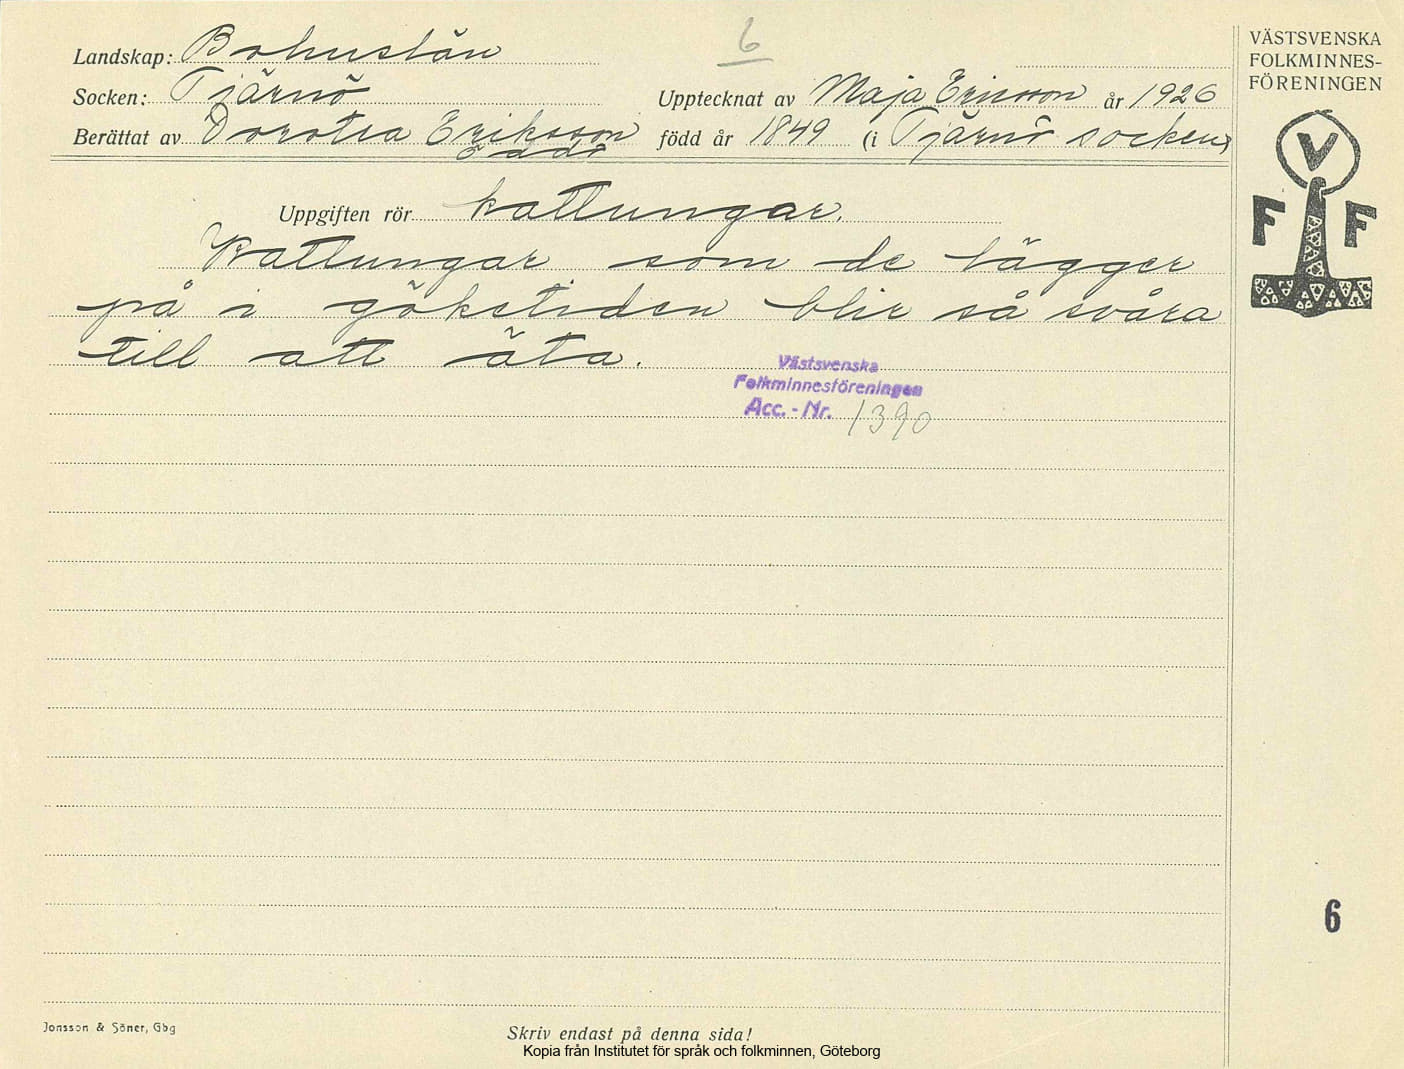 6
Landskap: Bohuslän
Socken: Tjärnö
Upptecknat av Maja Ericsson år 1926
Berättat av Dorotea Eriksson född år 1849 (i Tjärnö socken)
Öddö
VÄSTSVENSKA
FOLKMINNES-
FÖRENINGEN
V
F F
Uppgiften rör kattungar.
Kattungar som de lägger
på i gökstiden blir så svåra
till att äta.
Västsvenska
Folkminnesföreningen
Acc. - Nr. 1390
6
Jonsson & Söner, Gbg
Skriv endast på denna sida!
Kopia från Institutet för språk och folkminnen, Göteborg